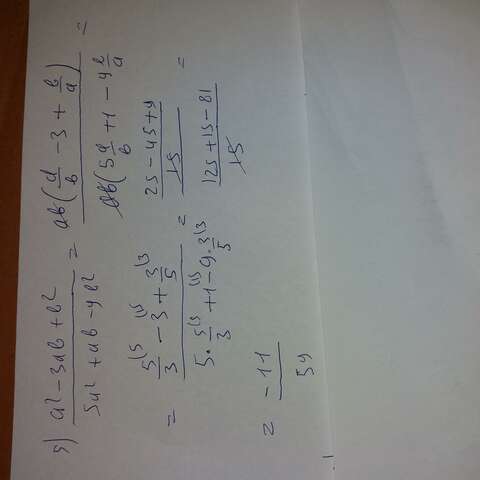 5) \frac{a^2-3ab+b^2}{5a^2+ab-9b^2} = \frac{ab(\frac{a}{b}-3+\frac{b}{a})}{ab(5\frac{a}{b}+1-9\frac{b}{a}} =
= \frac{\frac{5}{3}^{(5}-3^{(15}+\frac{3}{5}^{(3}}{5·\frac{5}{3}^{(5}+1^{(15}-9·\frac{3}{5}^{(3}} = \frac{\frac{25-45+9}{15}}{\frac{125+15-81}{15}} =
= \frac{-11}{59}